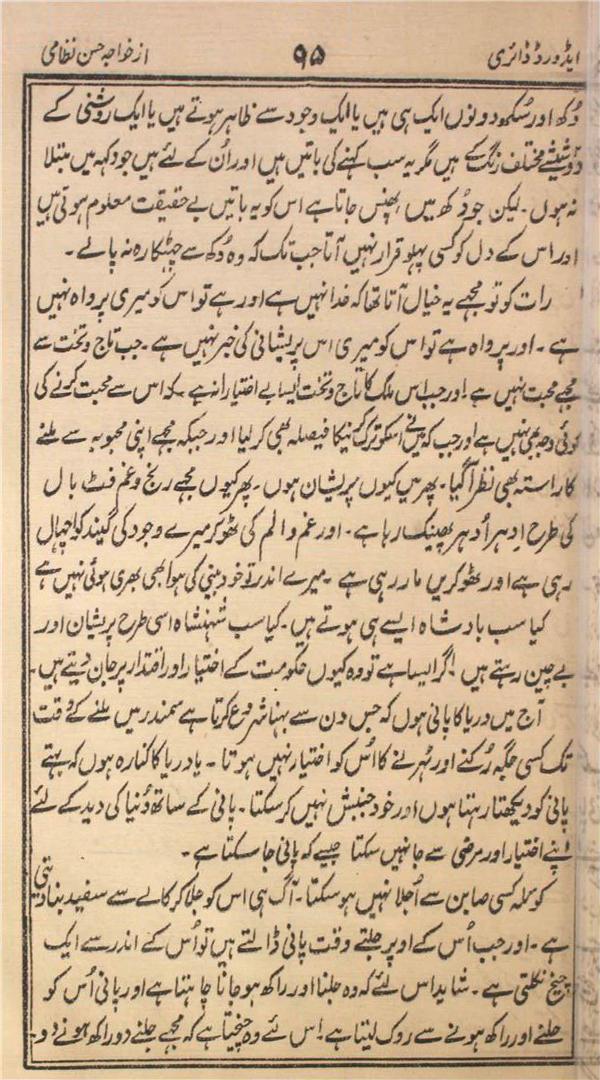 ایڈورڈ ڈائری ۹۵ از خواجہ حسن نظامی
دُکھ اور سُکھ دونوں ایک ہی ہیں یا ایک وجود سے ظاہر ہوتے ہیں یا ایک روشنی کے
دو شیشے مختلف رنگ کے ہیں مگر یہ سب کہنے کی باتیں ہیں اور اُن کے لئے ہیں جو دکھ میں مبتلا
نہ ہوں۔ لیکن جو دُکھ میں پھنس جاتا ہے اس کو یہ باتیں بے حقیقت معلوم ہوتی ہیں
اور اس کے دل کو کسی پہلو قرار نہیں آتا جب تک کہ وہ دُکھ سے چھٹکارہ نہ پالے۔
رات کو تو مجھے یہ خیال آتا تھا کہ خدا نہیں ہے اور ہے تو اس کو میری پرواہ نہیں
ہے۔ اور پرواہ ہے تو اس کو میری اس پریشانی کی خبر نہیں ہے۔ جب تاج و تخت سے
مجھے محبت نہیں ہے اور جب اس ملک کا تاج و تخت ایسا بے اختیارانہ ہے۔ کہ اس سے محبت کرنے کی
کوئی وجہ بھی نہیں ہے اور جب کہ میں نے اسکو ترک کرنیکا فیصلہ بھی کر لیا اور جبکہ مجھے اپنی محبوبہ سے ملنے
کا راستہ بھی نظر آگیا۔ پھر میں کیوں پریشان ہوں۔ پھر کیوں مجھے رنج و غم فٹ بال
کی طرح اِدہر اُدہر پھینک رہا ہے۔ اور غم و الم کی ٹھوکر میرے وجود کی گیند کو اچھال
رہی ہے اور ٹھوکریں مار رہی ہے۔ میرے اندر تو خود بینی کی ہوا بھی بھری ہوئی نہیں ہے
کیا سب بادشاہ ایسے ہی ہوتے ہیں۔ کیا سب شہنشاہ اسی طرح پریشان اور
بے چین رہتے ہیں۔ اگر ایسا ہے تو وہ کیوں حکومت کے اختیار اور اقتدار پر جان دیتے ہیں۔
آج میں دریا کا پانی ہوں کہ جس دن سے بہنا شروع کرتا ہے سمندر میں ملنے کے وقت
تک کسی جگہ رُکنے اور ٹہرنے کا اُس کو اختیار نہیں ہوتا۔ یا دریا کا کنارہ ہوں کہ بہتے
پانی کو دیکھتا رہتا ہوں اور خود جنبش نہیں کر سکتا۔ پانی کے ساتھ دُنیا کی دید کے لئے
اپنے اختیار اور مرضی سے جا نہیں سکتا جیسے کہ پانی جا سکتا ہے۔
کوئلہ کسی صابن سے اُجلا نہیں ہو سکتا۔ آگ ہی اس کو جلا کر کالے سے سفید بنا دیتی
ہے۔ اور جب اُس کے اوپر جلتے وقت پانی ڈالتے ہیں تو اُس کے اندر سے ایک
چیخ نکلتی ہے۔ شاید اس لئے کہ وہ جلنا اور راکھ ہو جانا چاہتا ہے اور پانی اُس کو
جلنے اور راکھ ہونے سے روک لیتا ہے۔ اس لئے وہ چیختا ہے کہ مجھے جلنے دو راکھ ہونے دو۔